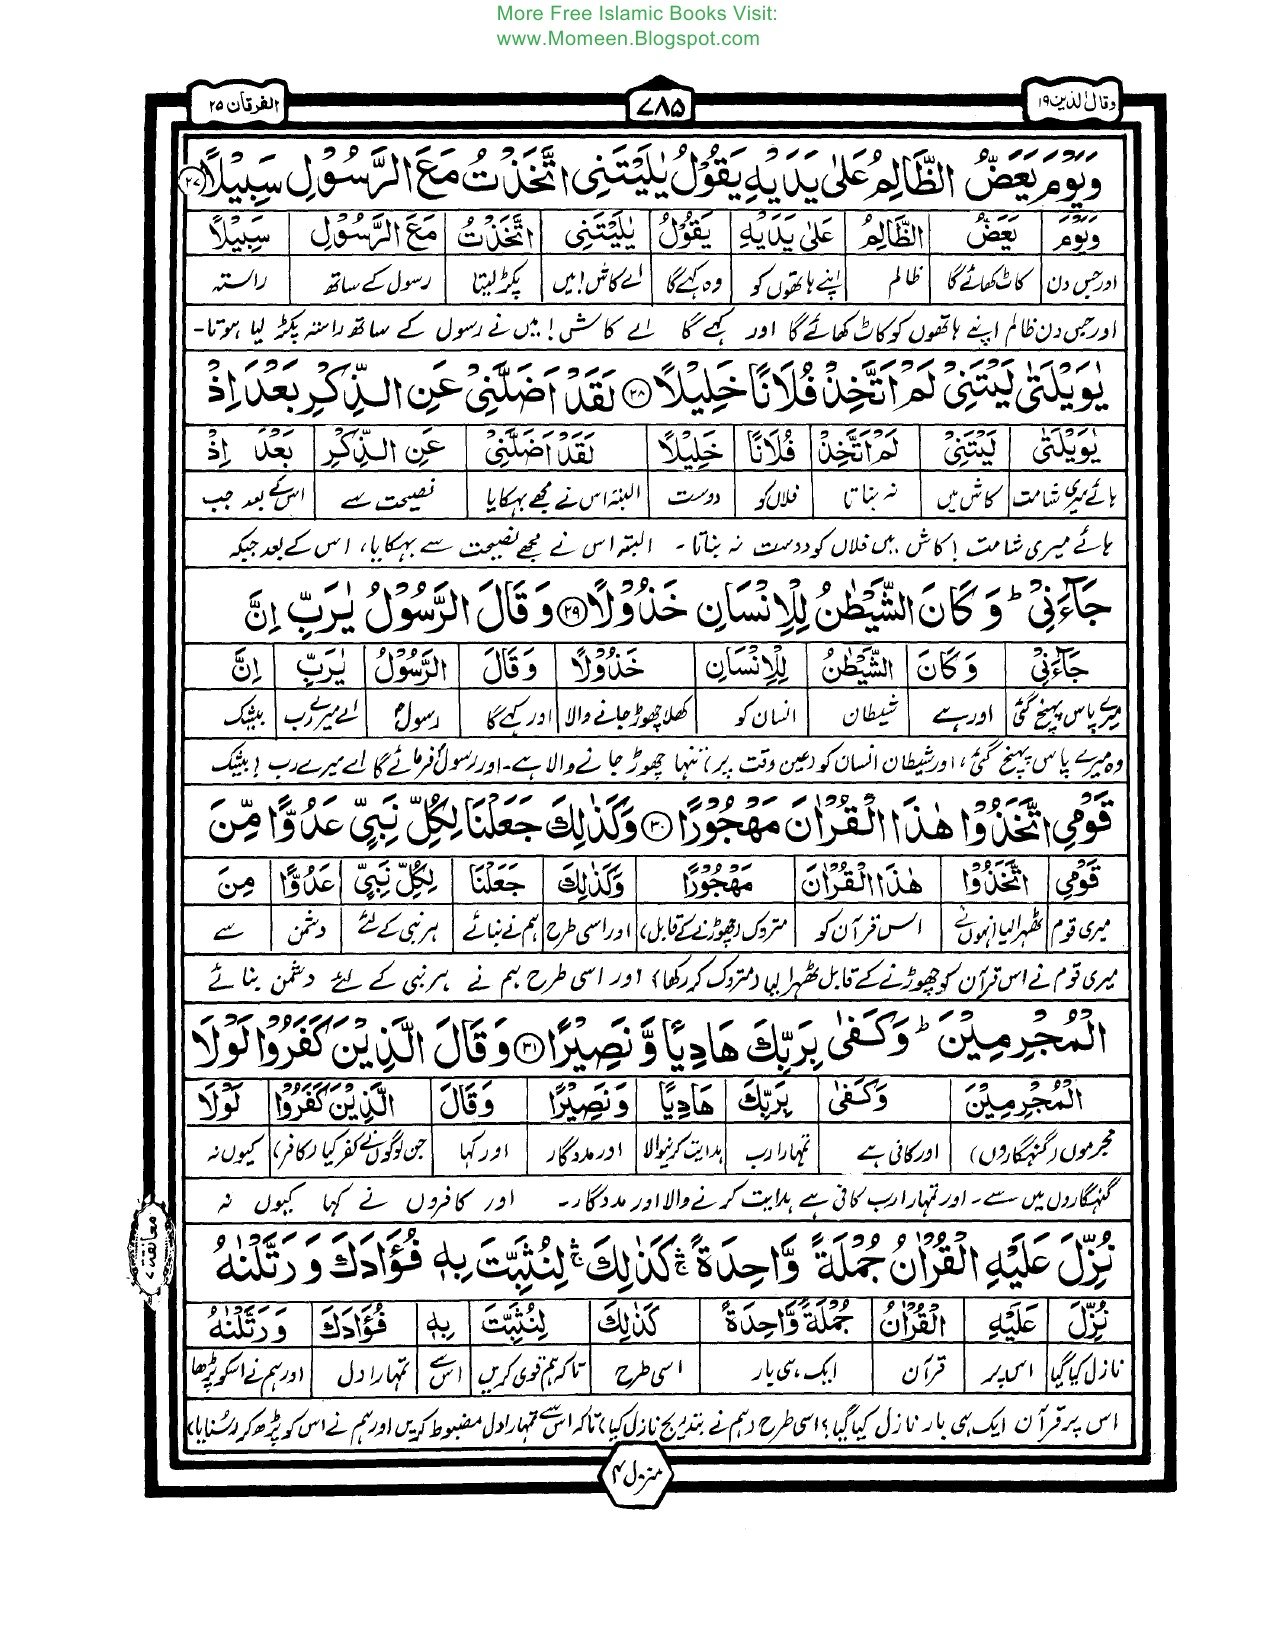 More Free Islamic Books Visit:
www.Momeen.Blogspot.com
وقال الذین ۱۹
۷۸۵
الفرقان ۲۵
وَيَوْمَ يَعَضُّ الظَّالِمُ عَلٰى يَدَيْهِ يَقُوْلُ يٰلَيْتَنِى اتَّخَذْتُ مَعَ الرَّسُوْلِ سَبِيْلًا ۲۷
وَيَوْمَ يَعَضُّ الظَّالِمُ عَلٰى يَدَيْهِ يَقُوْلُ يٰلَيْتَنِى اتَّخَذْتُ مَعَ الرَّسُوْلِ سَبِيْلًا
اور جس دن کاٹ کھائے گا ظالم اپنے ہاتھوں کو وہ کہے گا اے کاش! میں پکڑ لیتا رسول کے ساتھ راستہ
اور جس دن ظالم اپنے ہاتھوں کو کاٹ کھائے گا اور کہے گا اے کاش! میں نے رسول کے ساتھ راستہ پکڑ لیا ہوتا۔
يٰوَيْلَتٰى لَيْتَنِىْ لَمْ اَتَّخِذْ فُلَانًا خَلِيْلًا ۲۸ لَقَدْ اَضَلَّنِىْ عَنِ الذِّكْرِ بَعْدَ اِذْ
يٰوَيْلَتٰى لَيْتَنِىْ لَمْ اَتَّخِذْ فُلَانًا خَلِيْلًا لَقَدْ اَضَلَّنِىْ عَنِ الذِّكْرِ بَعْدَ اِذْ
ہائے میری شامت کاش میں نہ بناتا فلاں کو دوست البتہ اس نے مجھے بہکایا نصیحت سے اس کے بعد جب
ہائے میری شامت! کاش میں فلاں کو دوست نہ بناتا۔ البتہ اس نے مجھے نصیحت سے بہکایا، اس کے بعد جبکہ
جَآءَنِىْ ؕ وَكَانَ الشَّيْطٰنُ لِلْاِنْسَانِ خَذُوْلًا ۲۹ وَقَالَ الرَّسُوْلُ يٰرَبِّ اِنَّ
جَآءَنِىْ وَكَانَ الشَّيْطٰنُ لِلْاِنْسَانِ خَذُوْلًا وَقَالَ الرَّسُوْلُ يٰرَبِّ اِنَّ
میرے پاس پہنچ گئی اور ہے شیطان انسان کو کھلا چھوڑ جانے والا اور کہے گا رسولؐ اے میرے رب بیشک
وہ میرے پاس پہنچ گئی، اور شیطان انسان کو (عین وقت پر) تنہا چھوڑ جانے والا ہے۔ اور رسولؐ فرمائے گا اے میرے رب! بیشک
قَوْمِى اتَّخَذُوْا هٰذَا الْقُرْاٰنَ مَهْجُوْرًا ۳۰ وَكَذٰلِكَ جَعَلْنَا لِكُلِّ نَبِىٍّ عَدُوًّا مِّنَ
قَوْمِى اتَّخَذُوْا هٰذَا الْقُرْاٰنَ مَهْجُوْرًا وَكَذٰلِكَ جَعَلْنَا لِكُلِّ نَبِىٍّ عَدُوًّا مِنَ
میری قوم ٹھہرالیا انہوں نے اس قرآن کو متروک (چھوڑنے کے قابل) اور اسی طرح ہم نے بنائے ہر نبی کے لئے دشمن سے
میری قوم نے اس قرآن کو چھوڑنے کے قابل ٹھہرالیا (متروک کر رکھا) اور اسی طرح ہم نے ہر نبی کے لئے دشمن بنائے
الْمُجْرِمِيْنَ ؕ وَكَفٰى بِرَبِّكَ هَادِيًا وَّنَصِيْرًا ۳۱ وَقَالَ الَّذِيْنَ كَفَرُوْا لَوْلَا
الْمُجْرِمِيْنَ وَكَفٰى بِرَبِّكَ هَادِيًا وَنَصِيْرًا وَقَالَ الَّذِيْنَ كَفَرُوْا لَوْلَا
مجرموں (گنہگاروں) اور کافی ہے تمہارا رب ہدایت کرنیوالا اور مددگار اور کہا جن لوگوں نے کفر کیا (کافر) کیوں نہ
گنہگاروں میں سے۔ اور تمہارا رب کافی ہے ہدایت کرنے والا اور مددگار۔ اور کافروں نے کہا کیوں نہ
معانقة ۷
نُزِّلَ عَلَيْهِ الْقُرْاٰنُ جُمْلَةً وَّاحِدَةً ۛۚ كَذٰلِكَ ۛۚ لِنُثَبِّتَ بِهٖ فُؤَادَكَ وَرَتَّلْنٰهُ
نُزِّلَ عَلَيْهِ الْقُرْاٰنُ جُمْلَةً وَّاحِدَةً كَذٰلِكَ لِنُثَبِّتَ بِهٖ فُؤَادَكَ وَرَتَّلْنٰهُ
نازل کیا گیا اس پر قرآن ایک ہی بار اسی طرح تاکہ ہم قوی کریں اس سے تمہارا دل اور ہم نے اسکو پڑھا
اس پر قرآن ایک ہی بار نازل کیا گیا؟ اسی طرح (ہم نے بتدریج نازل کیا) تاکہ اس سے تمہارا دل مضبوط کریں اور ہم نے اس کو پڑھ کر (سنایا)
منزل ۴